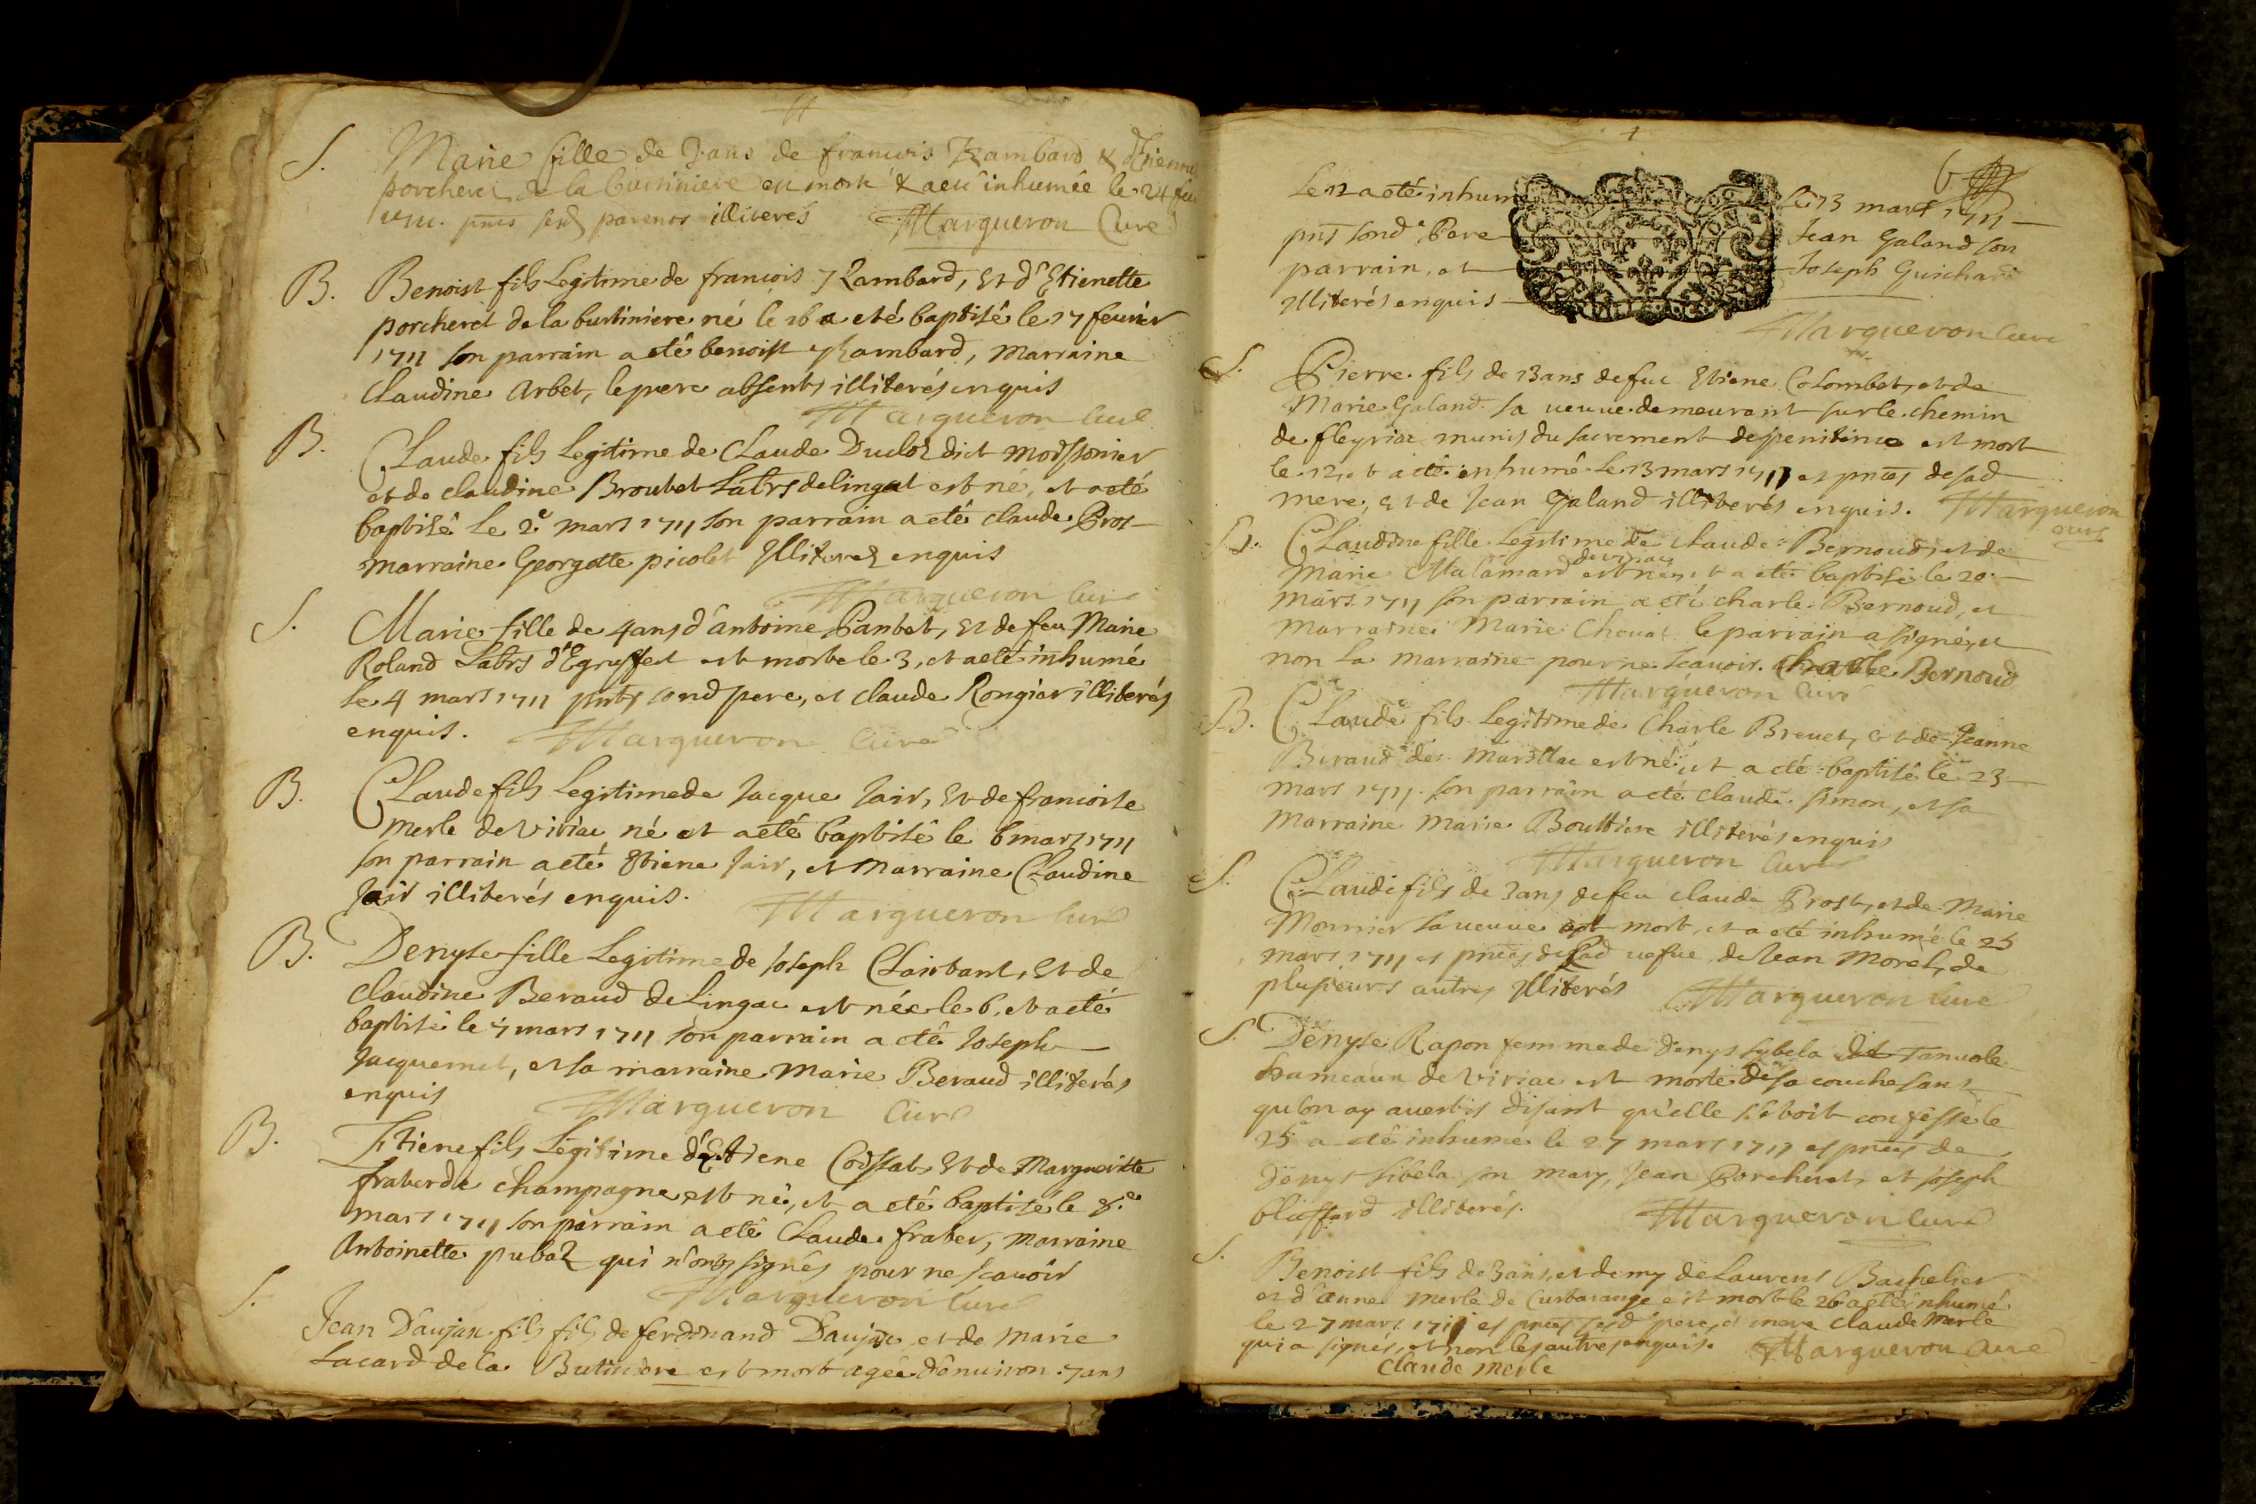 S.
Marie fille de 3 ans de francois Rambard & d'Etienne
porcheret de la burtiniere est morte & a eté inhumée le 24 feu
1711. pnts sesd parents illiterés Margueron Curé
B.
Benoist fils Legitime de francois Rambard, Et d'Etienette
porcheret de la burtiniere né le 16 a eté baptisé le 17 feurier
1711 son parrain a eté benoist Rambard, marraine
Claudine Arbet, le pere absents illiterés enquis
Margueron Curé
B.
Claude fils Legitime de Claude Ducloz dict
et de claudine Broutet Labrs de lingat est né, et a eté
baptisé Le 2e mars 1711 son parrain a eté claude Pros-
marraine Georgette picolet Illiterez enquis
Margueron Curé
S.
Marie fille de 4 ans d'antoine Panbet, Et de feu Marie
Roland Labrs d'Egruffest est morte le 3, et a eté inhumé
le 4 mars 1711 pnts sond pere, et claude Rongier illiterés
enquis. Margueron Curé
B.
Claude fils Legitime de Jacque Jair, Et de francoise
Merle de Viriac né et a eté baptisé le 6 mars 1711
son parrain a eté Etiene Jair, et Marraine Claudine
Jair illiterés enquis. Margueron Curé
B.
Denyse fille Legitime de Joseph Clairbant, Et de
Claudine Beraud de Lingac est née le 6, et a eté
baptisé le 7 mars 1711 son parrain a eté Joseph
Jacquemet, et sa marraine Marie Beraud illiterés
enquis Margueron Curé
B.
Etiene fils Legitime d'Etiene Coissat, Et de Margueritte
frater de champagne est né, et a eté baptisé le 8.e
mars 1711 son parrain a eté Claude frater, Marraine
Antoinette pubaz qui n'ont signés pour ne scauoir
Margueron Curé
S.
Jean Daujan fils fils de ferdinand Daujan, et de Marie
Lacard de la Butiniere est mort agée d'enuiron 7 ans
6
Le 12 a eté inhumé le 13 mars 1711
pnt sond. Pere Jean Galand son
parrain, et Joseph Guichard
Illiterés enquis
Margueron Curé
S.
Pierre fils de 13 ans de fue Etiene Colombet, et de
Marie Galand sa ueuue demeurant sur le chemin
de fleyriac munis du sacrement de penitence est mort
le 12, et a eté inhumé le 13 mars 1711 es pntes de sad
mere, et de Jean Galand illiterés enquis. Margueron
curé
B.
Claudine fille Legitime de claude Bernoud, et de
Marie Malamard de viriac est née, et a eté baptisé le 20
mars 1711 son parrain a eté charle Bernoud, et
marraine Marie Chouat le parrain a signé, et
non la marraine pour ne scauoir. Charle Bernoud
Margueron Curé
B.
Claude fils Legitime de Charle Breuet, et de Jeanne
Beraud des Marillac est né, et a eté baptisé le 23
mars 1711. son parrain a eté claude simon, et sa
marraine Marie Bouttiere illiterés enquis
Margueron Curé
S.
Claude fils de 3 ans de feu claude Prost, et de Marie
Monnier sa ueuue est mort, et a eté inhumé le 25
mars 1711 es pntes de Lad uefue, de Jean Morel, de
plusieurs autres Illiterés Margueron Curé
S.
Denyse Rapon femme de denys sibela de Tanuole
hameaux de Viriac est morte de sa couche sans
qu'on ay auertis disant qu'elle s'étoit confesse le
25e a eté inhume le 27 mars 1711 es pntes de
denys sibela son mary, Jean Porcheret, et Joseph
bluffard illiterés. Margueron Curé
S.
Benoist fils de 3 ans, et demy de Laurens Bachelier
et d'anne Merle de Curbarange est mort le 26 a eté inhumé
le 27 mars 1711 es pntes sesd pere, et mere claude Merle
qui a signé, et non les autres enquis. Margueron Curé
Claude Merle